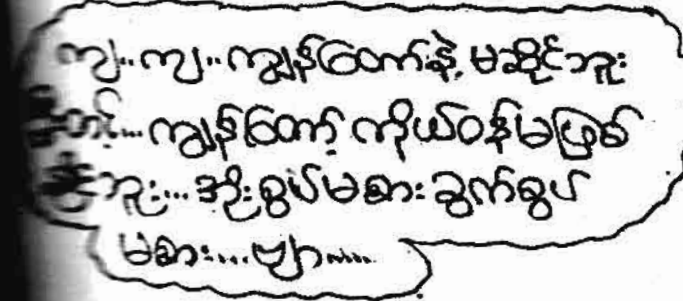 ကျ..ကျ..ကျွန်တော်နဲ့ မဆိုင်ဘူး
...ကျွန်တော့် ကိုယ်ဝန်မဖြစ်
နိုင်ဘူး...အိုးစွပ်မစား ခွက်စွပ်
မစား...ဗျာ....